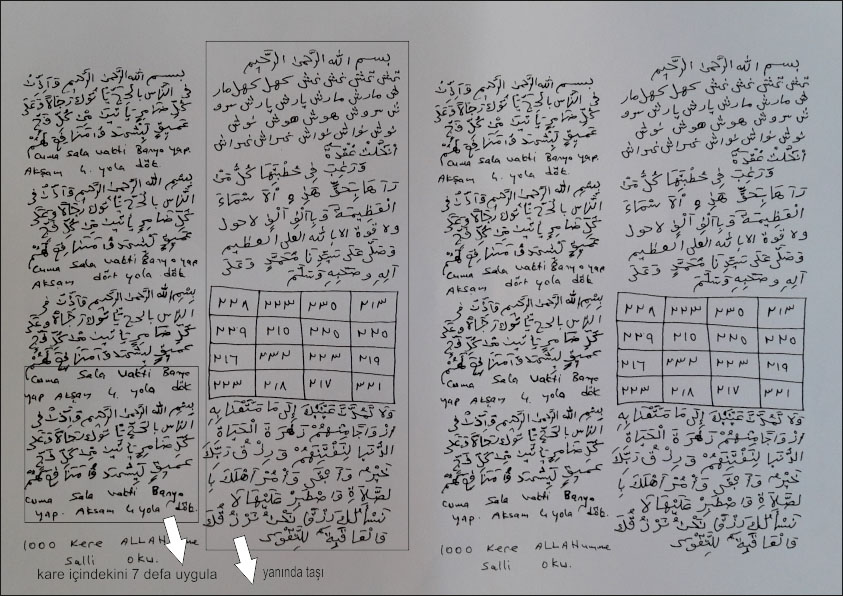 بسم الله الرحمن الرحيم وَاَذِّنْ
فِى النَّاسِ بِالْحَجِّ يَأْتُوكَ رِجَالًا وَعَلَى
كُلِّ ضَامِرٍ يَأْتِينَ مِنْ كُلِّ فَجٍّ
عَمِيقٍ لِيَشْهَدُوا مَنَافِعَ لَهُمْ
Cuma Sala vakti Banyo yap.
Akşam 4. yola dök.
بسم الله الرحمن الرحيم وَاَذِّنْ فِى
النَّاسِ بِالْحَجِّ يَأْتُوكَ رِجَالًا وَعَلَى
كُلِّ ضَامِرٍ يَأْتِينَ مِنْ كُلِّ فَجٍّ
عَمِيقٍ لِيَشْهَدُوا مَنَافِعَ لَهُمْ
Cuma Sala vakti Banyo yap
Akşam dört yola dök
بسم الله الرحمن الرحيم وَاَذِّنْ فِى
النَّاسِ بِالْحَجِّ يَأْتُوكَ رِجَالًا وَعَلَى
كُلِّ ضَامِرٍ يَأْتِينَ مِنْ كُلِّ فَجٍّ
عَمِيقٍ لِيَشْهَدُوا مَنَافِعَ لَهُمْ
Cuma Sala vakti Banyo
yap Akşam 4. yola dök
بسم الله الرحمن الرحيم وَاَذِّنْ فِى
النَّاسِ بِالْحَجِّ يَأْتُوكَ رِجَالًا وَعَلَى
كُلِّ ضَامِرٍ يَأْتِينَ مِنْ كُلِّ فَجٍّ
عَمِيقٍ لِيَشْهَدُوا مَنَافِعَ لَهُمْ
Cuma Sala vakti Banyo
yap. Akşam 4 yola dök.
1000 kere ALLAHumme
Salli oku.
kare içindekini 7 defa uygula
بسم الله الرحمن الرحيم
كهل كهل مار
ش مارش مارش پارش پارش سرو
ش سروش هوش هوش نوش
نوش نواش نواش
وَرَغِبَ فِى خُطْبَتِهَا كُلُّ مَنْ
رَآهَا بِحَقِّ هٰذِهِ الاسماء
العظيمة لاحول
ولا قوة الا بالله العلى العظيم
وَصَلَّى عَلَى سَيِّدِنَا مُحَمَّدٍ وَعَلَى
آلِهِ وصَحْبِهِ وَسَلَّمَ
٢٢٨ ٢٢٣ ٢٣٥ ٢١٣
٢٢٩ ٢١٥ ٢٢٥ ٢٢٥
٢١٦ ٢٣٢ ٢٢٣ ٢١٩
٢٢٣ ٢١٨ ٢١٧ ٢٢١
وَلَا تَمُدَّنَّ عَيْنَيْكَ اِلَى مَا مَتَّعْنَا بِهِ
اَزْوَاجًا مِنْهُمْ زَهْرَةَ الْحَيَاةِ
الدُّنْيَا لِنَفْتِنَهُمْ وَرِزْقُ رَبِّكَ
خَيْرٌ وَاَبْقَى وَأْمُرْ اَهْلَكَ بِا
لصَّلَاةِ وَاصْطَبِرْ عَلَيْهَا لَا
نَسْأَلُكَ رِزْقًا نَحْنُ نَرْزُقُكَ
وَالْعَاقِبَةُ لِلتَّقْوَى
yanında taşı
بسم الله الرحمن الرحيم وَاَذِّنْ
فِى النَّاسِ بِالْحَجِّ يَأْتُوكَ رِجَالًا وَعَلَى
كُلِّ ضَامِرٍ يَأْتِينَ مِنْ كُلِّ فَجٍّ
عَمِيقٍ لِيَشْهَدُوا مَنَافِعَ لَهُمْ
Cuma Sala vakti Banyo yap.
Akşam 4. yola dök.
بسم الله الرحمن الرحيم وَاَذِّنْ فِى
النَّاسِ بِالْحَجِّ يَأْتُوكَ رِجَالًا وَعَلَى
كُلِّ ضَامِرٍ يَأْتِينَ مِنْ كُلِّ فَجٍّ
عَمِيقٍ لِيَشْهَدُوا مَنَافِعَ لَهُمْ
Cuma Sala vakti Banyo yap
Akşam dört yola dök
بسم الله الرحمن الرحيم وَاَذِّنْ فِى
النَّاسِ بِالْحَجِّ يَأْتُوكَ رِجَالًا وَعَلَى
كُلِّ ضَامِرٍ يَأْتِينَ مِنْ كُلِّ فَجٍّ
عَمِيقٍ لِيَشْهَدُوا مَنَافِعَ لَهُمْ
Cuma Sala vakti Banyo
yap Akşam 4. yola dök
بسم الله الرحمن الرحيم وَاَذِّنْ فِى
النَّاسِ بِالْحَجِّ يَأْتُوكَ رِجَالًا وَعَلَى
كُلِّ ضَامِرٍ يَأْتِينَ مِنْ كُلِّ فَجٍّ
عَمِيقٍ لِيَشْهَدُوا مَنَافِعَ لَهُمْ
Cuma Sala vakti Banyo
yap. Akşam 4 yola dök.
1000 kere ALLAHumme
Salli oku.
بسم الله الرحمن الرحيم
كهل كهل مار
ش مارش مارش پارش پارش سرو
ش سروش هوش هوش نوش
نوش نواش نواش
وَرَغِبَ فِى خُطْبَتِهَا كُلُّ مَنْ
رَآهَا بِحَقِّ هٰذِهِ الاسماء
العظيمة لاحول
ولا قوة الا بالله العلى العظيم
وَصَلَّى عَلَى سَيِّدِنَا مُحَمَّدٍ وَعَلَى
آلِهِ وصَحْبِهِ وَسَلَّمَ
٢٢٨ ٢٢٣ ٢٣٥ ٢١٣
٢٢٩ ٢١٥ ٢٢٥ ٢٢٥
٢١٦ ٢٣٢ ٢٢٣ ٢١٩
٢٢٣ ٢١٨ ٢١٧ ٢٢١
وَلَا تَمُدَّنَّ عَيْنَيْكَ اِلَى مَا مَتَّعْنَا بِهِ
اَزْوَاجًا مِنْهُمْ زَهْرَةَ الْحَيَاةِ
الدُّنْيَا لِنَفْتِنَهُمْ وَرِزْقُ رَبِّكَ
خَيْرٌ وَاَبْقَى وَأْمُرْ اَهْلَكَ بِا
لصَّلَاةِ وَاصْطَبِرْ عَلَيْهَا لَا
نَسْأَلُكَ رِزْقًا نَحْنُ نَرْزُقُكَ
وَالْعَاقِبَةُ لِلتَّقْوَى